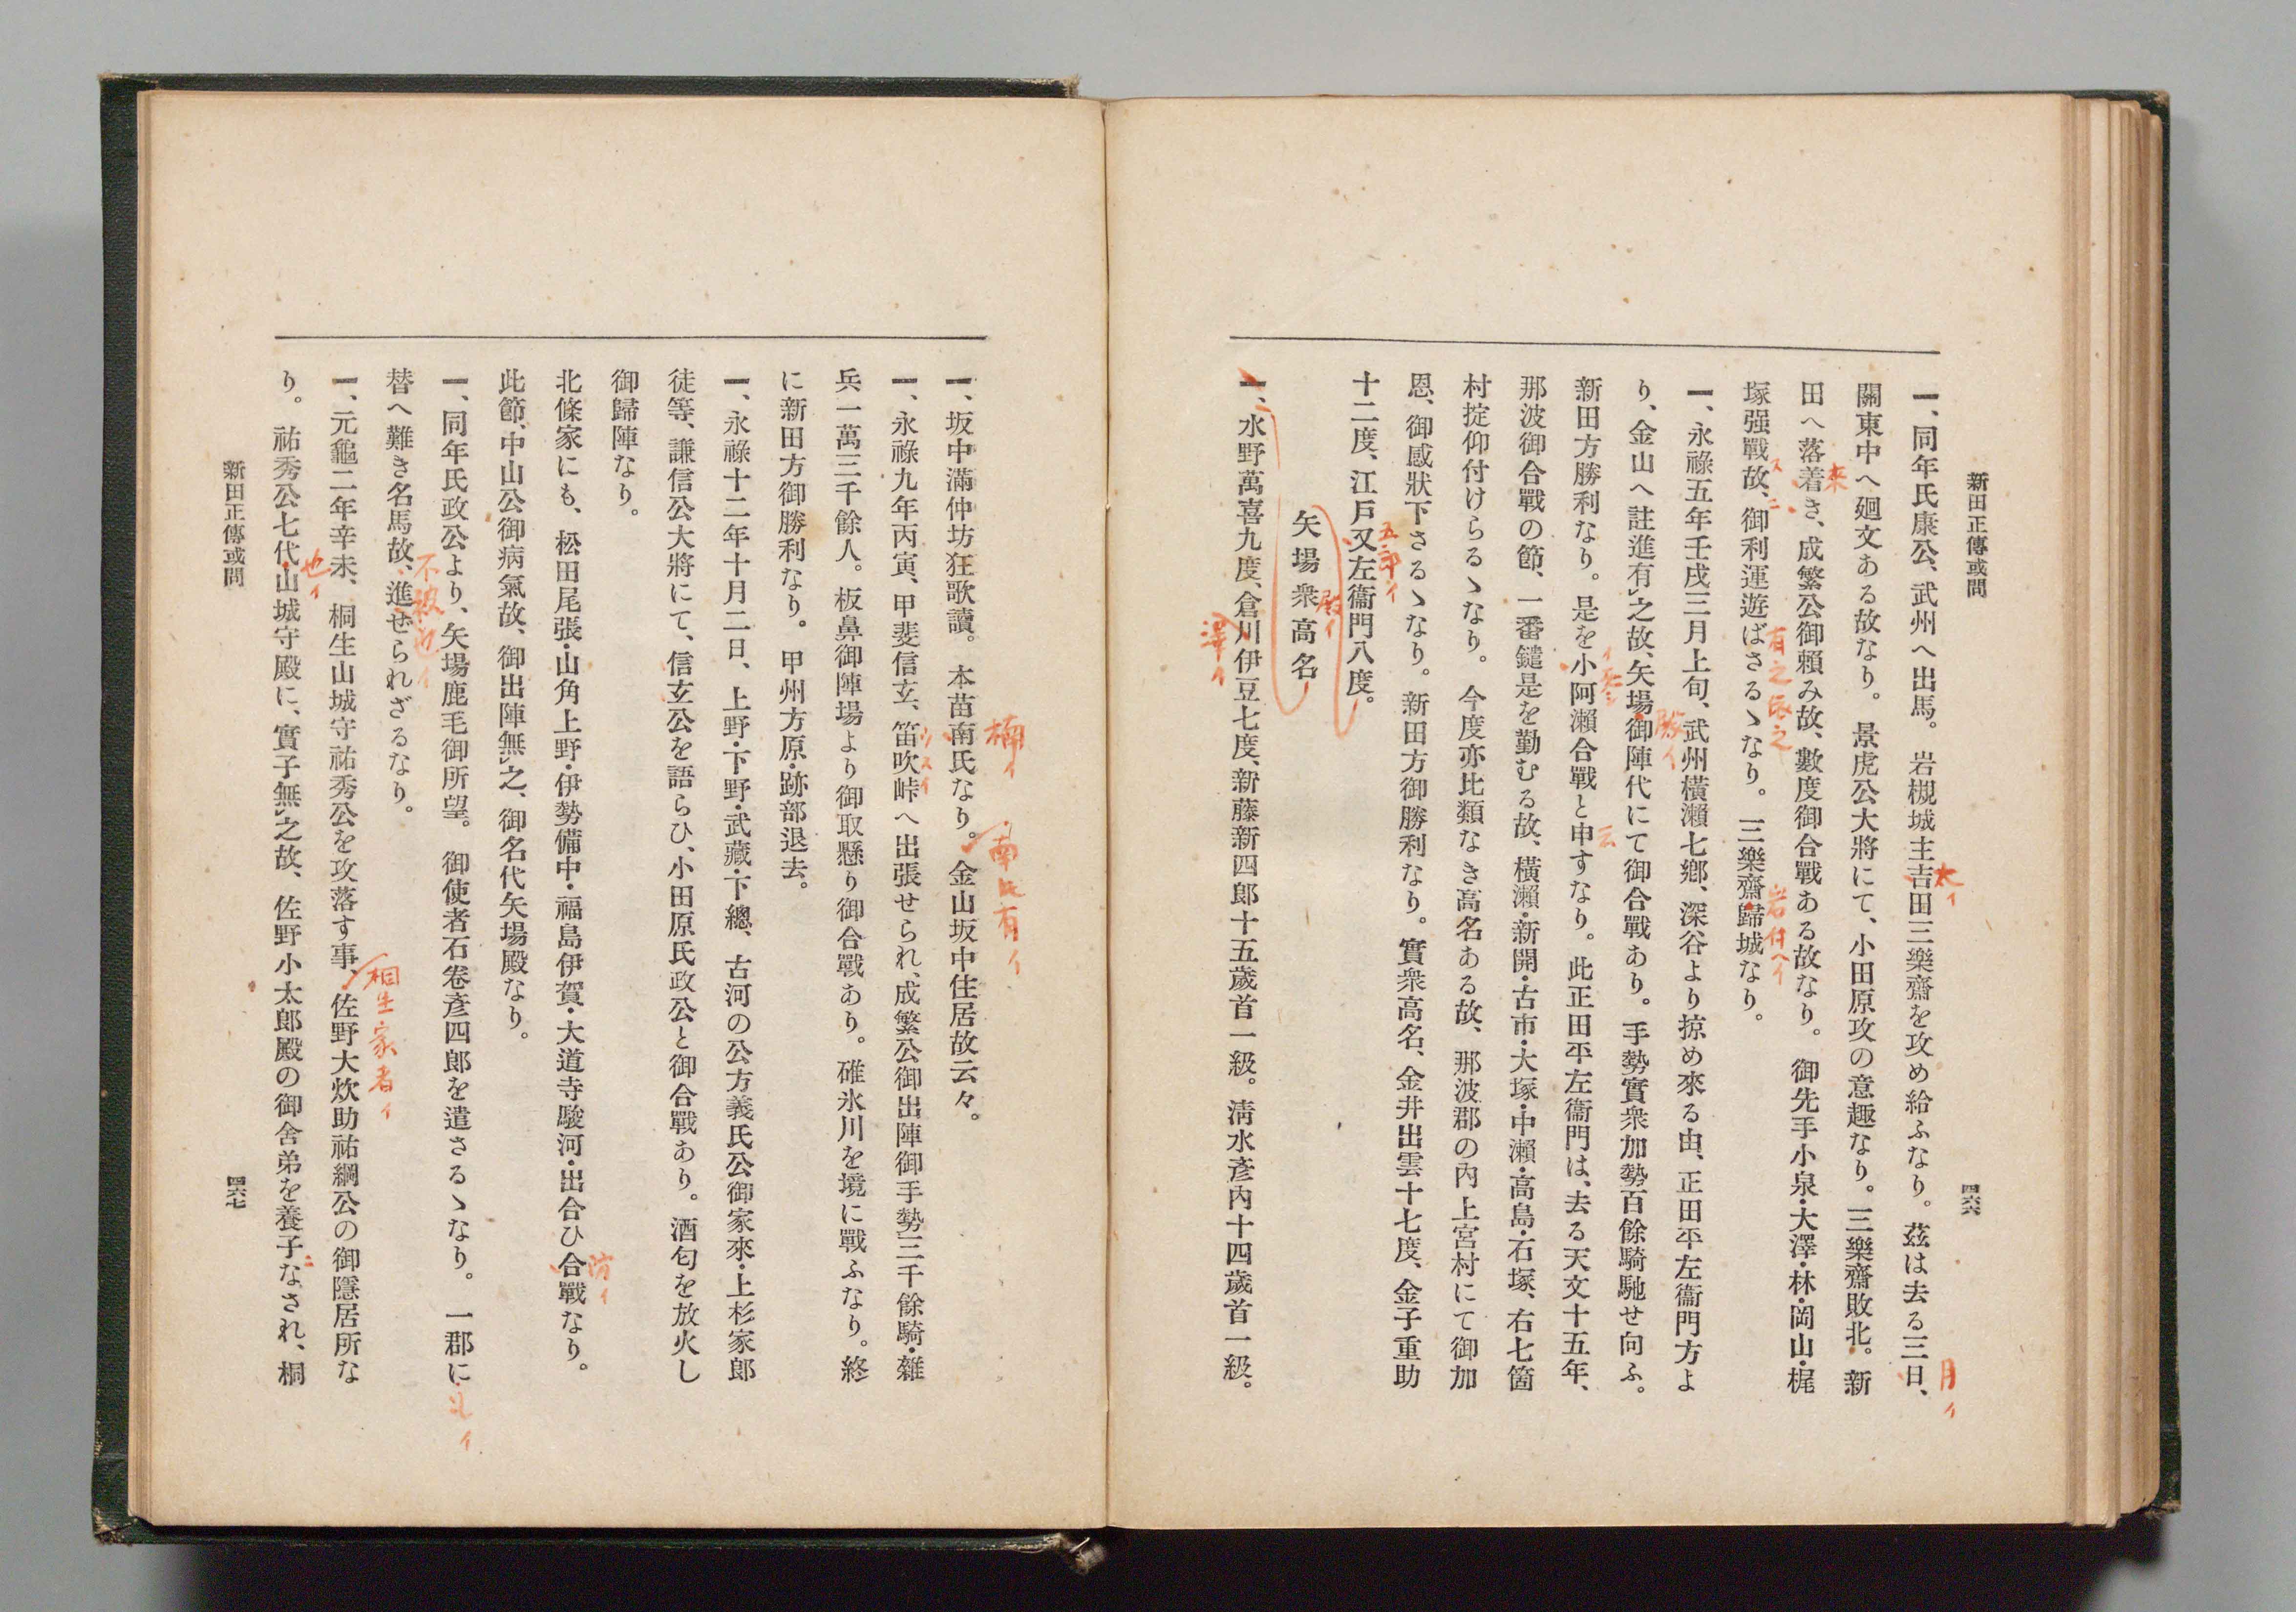 新田正傳或問
四六六
一、同年氏康公、武州へ出馬。岩槻城主吉田三樂齋を攻め給ふなり。茲は去る三日、
太イ
月イ
關東中へ廻文ある故なり。景虎公大將にて、小田原攻の意趣なり。三樂齋敗北。新
田へ落着き、成繁公御賴み故、數度御合戰ある故なり。御先手小泉・大澤・林・岡山・梶
來
塚强戰故、御利運遊ばさるゝなり。三樂齋歸城なり。
スニ
岩付へイ
一、永祿五年壬戌三月上旬、武州橫瀨七鄕、深谷より掠め來る由、正田平左衞門方よ
り、金山へ註進有レ之故、矢場御陣代にて御合戰あり。手勢實衆加勢百餘騎馳せ向ふ。
殿イ
新田方勝利なり。是を小阿瀨合戰と申すなり。此正田平左衞門は、去る天文十五年、
云
那波御合戰の節、一番鑓是を勤むる故、橫瀨・新開・古市・大塚・中瀨・高島・石塚、右七箇
村掟仰付けらるゝなり。今度亦比類なき高名ある故、那波郡の內上宮村にて御加
恩、御感狀下さるゝなり。新田方御勝利なり。實衆高名、金井出雲十七度、金子重助
十二度、江戶又左衞門八度。
五郎イ
矢場衆高名
殿イ
一、水野萬喜九度、倉川伊豆七度、新藤新四郎十五歲首一級。淸水彥內十四歲首一級。
澤イ
一、坂中滿仲坊狂歌讀。本苗南氏なり。金山坂中住居故云々。
楠イ
南氏有イ
一、永祿九年丙寅、甲斐信玄、笛吹峠へ出張せられ、成繁公御出陣御手勢三千餘騎・雜
ウスイ
兵一萬三千餘人。板鼻御陣場より御取懸り御合戰あり。碓氷川を境に戰ふなり。終
に新田方御勝利なり。甲州方原・跡部退去。
一、永祿十二年十月二日、上野・下野・武藏・下總、古河の公方義氏公御家來・上杉家郞
徒等、謙信公大將にて、信玄公を語らひ、小田原氏政公と御合戰あり。酒匂を放火し
御歸陣なり。
北條家にも、松田尾張・山角上野・伊勢備中・福島伊賀・大道寺駿河・出合ひ合戰なり。
防イ
此節、中山公御病氣故、御出陣無レ之、御名代矢場殿なり。
一、同年氏政公より、矢場鹿毛御所望。御使者石卷彥四郞を遣さるゝなり。一郡に
替へ難き名馬故、進ぜられざるなり。
一、元龜二年辛未、桐生山城守祐秀公を攻落す事、佐野大炊助祐綱公の御隱居所な
桐生家者イ
り。祐秀公七代山城守殿に、實子無レ之故、佐野小太郞殿の御舍弟を養子なされ、桐
也イ
ニ
新田正傳或問
四六七